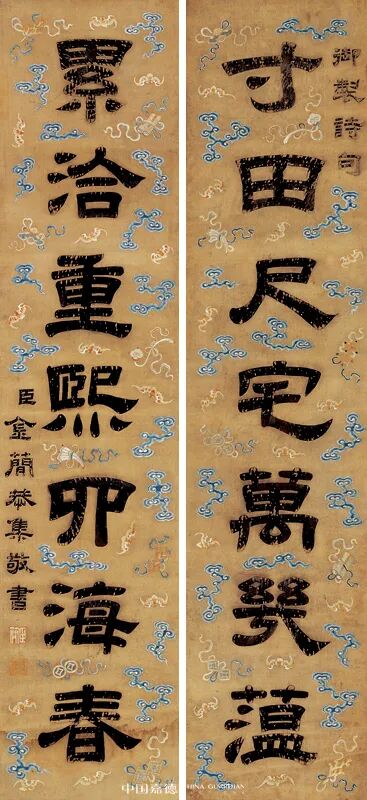 御製詩句
寸田尺宅萬幾蘊
累洽重熙四海春
臣金簡恭集敬書
中国嘉德 CHINA GUARDIAN